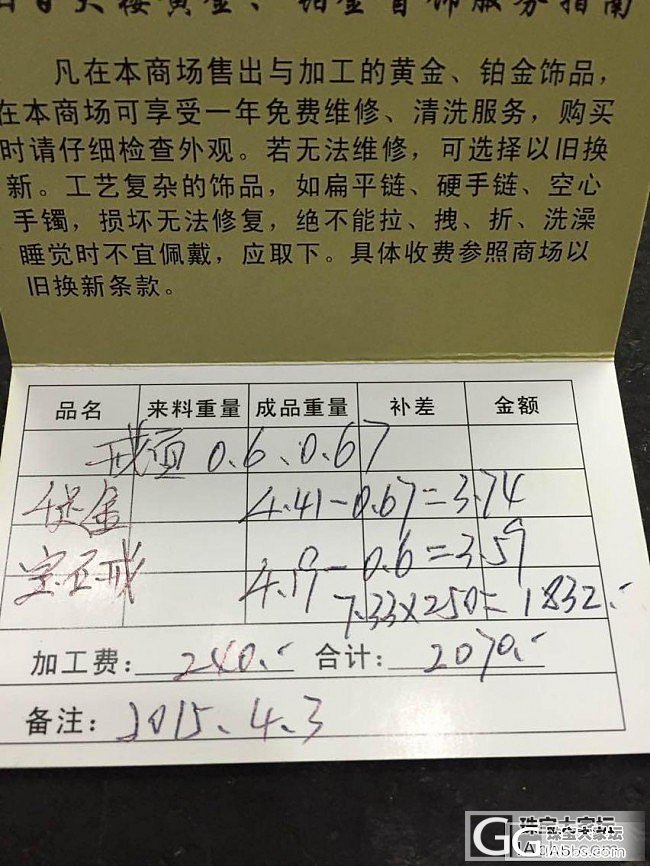 百大楼黄金、铂金首饰服务指南
凡在本商场售出与加工的黄金、铂金饰品，
在本商场可享受一年免费维修、清洗服务，购买
时请仔细检查外观。若无法维修，可选择以旧换
新。工艺复杂的饰品，如扁平链、硬手链、空心
手镯，损坏无法修复，绝不能拉、拽、折、洗澡
睡觉时不宜佩戴，应取下。具体收费参照商场以
旧换新条款。
品名 来料重量 成品重量 补差 金额
戒面 0.6、0.67
金 4.41-0.67=3.74
宝石戒 4.19-0.6=3.59
7.33×250=1832.-
加工费：240.- 合计：2070.-
备注：2015.4.3
珠宝大家坛